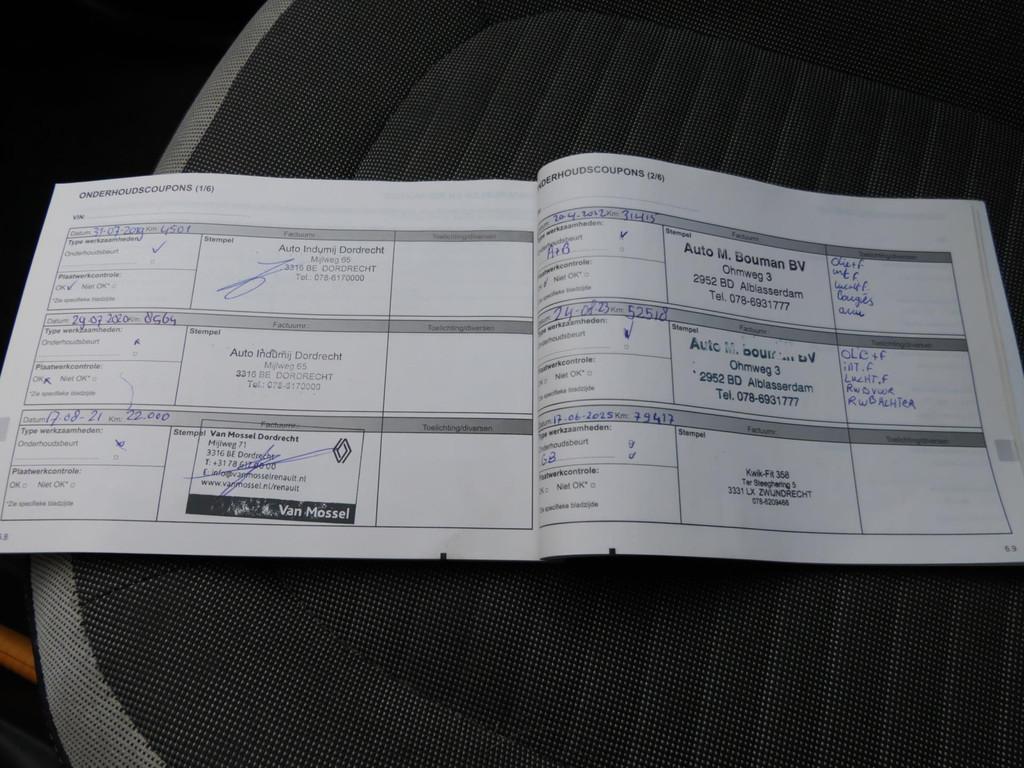 ONDERHOUDSCOUPONS (1/6)
VIN:
Datum: 31-07-2019 Km: 4501
Factuurnr.:
Type werkzaamheden:
Onderhoudsbeurt
Plaatwerkcontrole:
OK Niet OK*
*Zie specifieke bladzijde
Stempel
Auto Indumij Dordrecht
Mijlweg 65
3316 BE DORDRECHT
Tel.: 078-6170000
Toelichting/diversen
Datum: 29-07-2020 Km: 8564
Factuurnr.:
Type werkzaamheden:
Onderhoudsbeurt
Plaatwerkcontrole:
OK Niet OK*
*Zie specifieke bladzijde
Stempel
Auto Indumij Dordrecht
Mijlweg 65
3316 BE DORDRECHT
Tel.: 078-6170000
Toelichting/diversen
Datum: 17-08-21 Km: 22.000
Factuurnr.:
Type werkzaamheden:
Onderhoudsbeurt
Plaatwerkcontrole:
OK Niet OK*
*Zie specifieke bladzijde
Stempel
Van Mossel Dordrecht
Mijlweg 71
3316 BE Dordrecht
E: info@vanmosselrenault.nl
www.vanmossel.nl/renault
Van Mossel
Toelichting/diversen
6.8
ONDERHOUDSCOUPONS (2/6)
20-4-2022 Km: 31415
Factuurnr.:
werkzaamheden:
Onderhoudsbeurt
A+B
Plaatwerkcontrole:
Niet OK*
*Zie specifieke bladzijde
Stempel
Auto M. Bouman BV
Ohmweg 3
2952 BD Alblasserdam
Tel. 078-6931777
Toelichting/diversen
Olie+f
int f
lucht f.
bougies
24-08-23 Km: 52518
Factuurnr.:
werkzaamheden:
Onderhoudsbeurt
Plaatwerkcontrole:
Niet OK*
*Zie specifieke bladzijde
Stempel
Auto M. Bouman BV
Ohmweg 3
2952 BD Alblasserdam
Tel. 078-6931777
Toelichting/diversen
OLIE+f
INT.F
LUCHT.F
RWB VOOR
RWB ACHTER
Datum: 17-06-2025 Km: 79417
Factuurnr.:
Type werkzaamheden:
Onderhoudsbeurt
GB
Plaatwerkcontrole:
OK Niet OK*
*Zie specifieke bladzijde
Stempel
Kwik-Fit 358
Ter Steeghering 5
3331 LX ZWIJNDRECHT
078-6209466
Toelichting/diversen
6.9